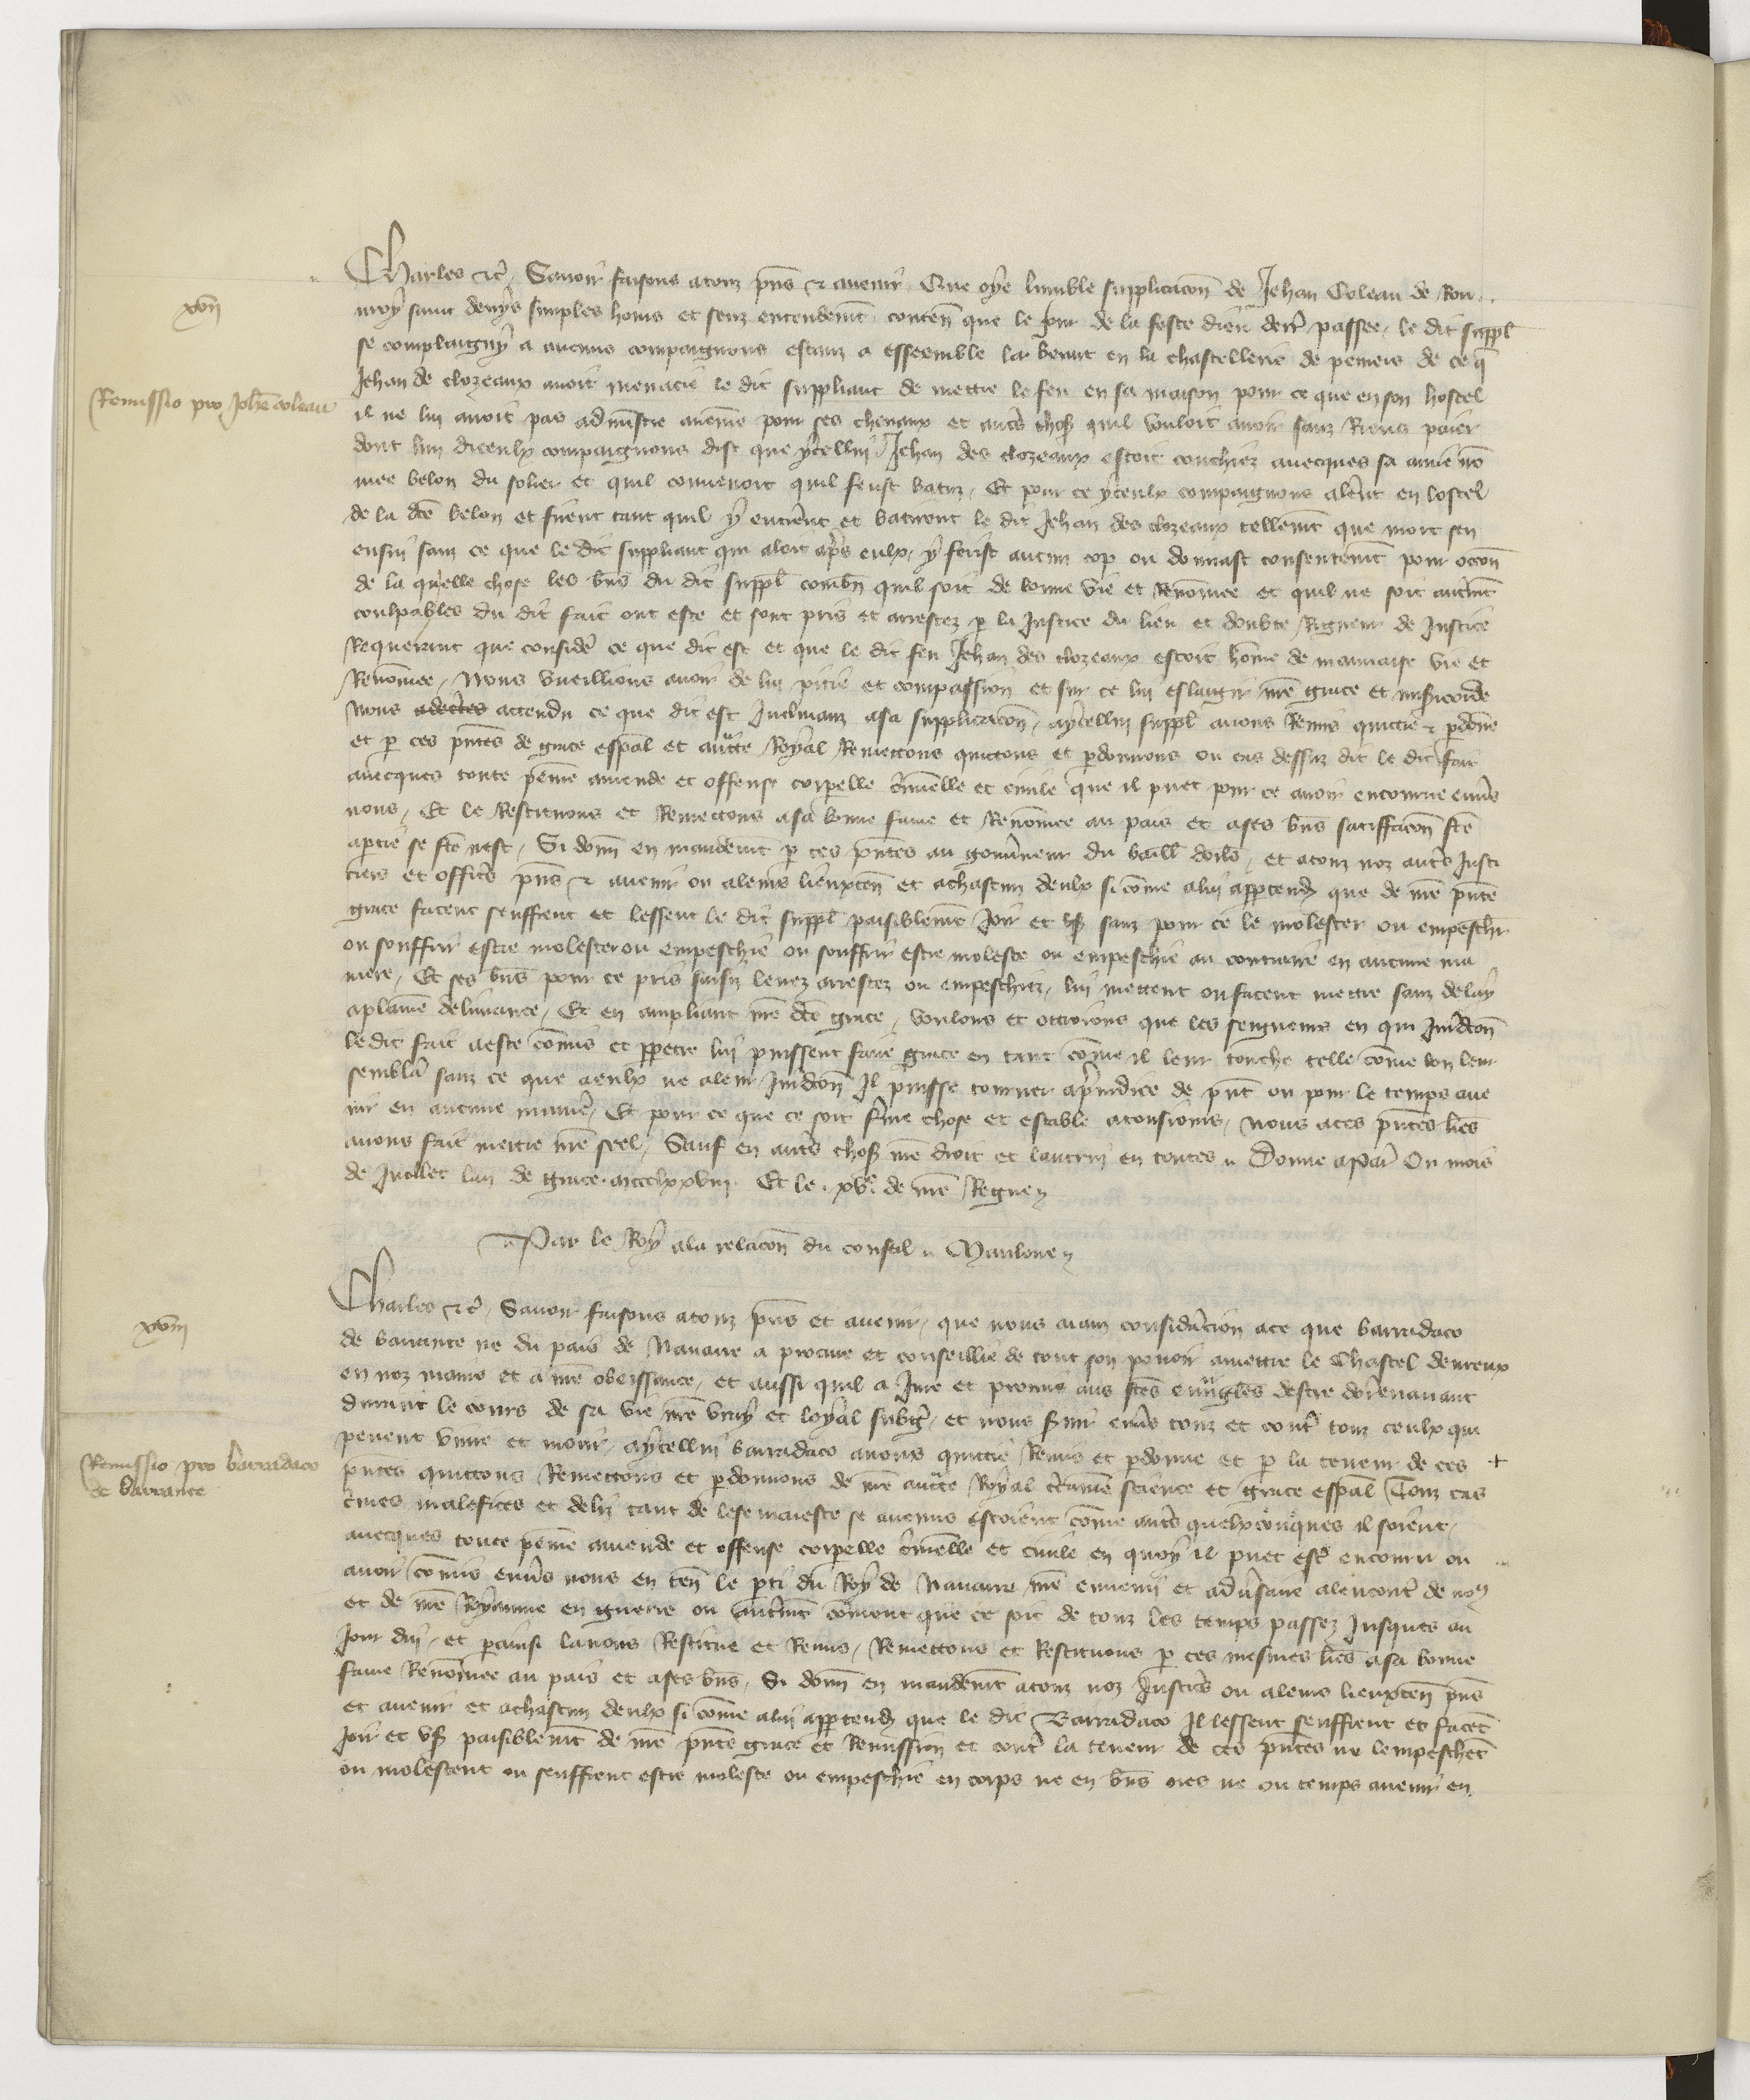 xvii
Remissio pro Johe coleau
Charles etc. Savoir faisons a touz pns et avenir Que oye lumble supplicacon de Jehan Coleau de Rou
vroy saint denys simples homs et senz entendemt conten que le jour de la feste dieu derr passee le dit suppl
se complaigny a aucuns compaignons estanz a esseemble la benut en la chastellerie de yemvis de ce q
Jehan de clozeaux avoit menacie le dit suppliant de mettre le feu en sa maison pour ce que en son hostel
il ne lui avoit pas admistre avenne pour ses chevaux et autrs chos quil vouloit avoir sanz Riens paier
dont lun diceulx compaignons dist que ycellui Jehan des clozeaux estoit couchiez avecques sa amie no
mee belon du solier et quil convenoit quil feust batuz, Et pour ce yceulx compaignons alerent en lostel
de la dce belon et firent tant quil y entrerent et batirent le dit Jehan des clozeaux tellemt que mort sen
ensui sanz ce que le dit suppliant qui aloit aprs eulx, y ferist aucun cop ou donnast consentemt pour occon
de la quelle chose les bns du dit suppl combn quil soit de bonne vie et Renomee et quil ne soit autremt
coulpables du dit fait ont este et sont pris et arrestez p la Justice du lieu et doubte Rigueur de Justice
Requerant que consider ce que dit est et que le dit feu Jehan des clozeaux estoit home de mauvaise vie et
Renomee, Nous vueillions avoir de lui pitie et compassion et sur ce lui eslargir nre grace et misicorde
Nous adectes attendu ce que dit est Inclinanz a sa supplicacon, a ycellui suppl avons Remis quictie et pdone
et p ces pntes de grace espal et auctte Royal Remettons quittons et pdonnons ou cas dessuz dit le dit fait
avecques toute peinne amende et offense corpelle crimelle et civile que il puet pour ce avoir encourue envrs
nous, Et le Restituons et Remettons a sa bonne fame et Renomee au pais et a ses bns satiffacon fce
a ptie se fce nest, Si donn en mandemt p ces pntes au gouvneur du baill dorls, et a touz noz autrs Justi
ciers et officrs pns et avenir ou a leurs lieuxten et a chascun deulx si come a lui apptend que de nre pnte
grace facent seuffrent et lessent le dit suppl paisiblemt Joir et us sanz pour ce le molester ou empeschr
ou souffrir estre molester ou empeschie ou souffrir estre moleste ou empeschie au contraire en aucune ma
niere, Et ses bns pour ce pris saisiz levez arrestez ou empeschiez, lui mettent ou facent mettre sanz delay
a plainne delivrance, Et en ampliant nre dce grace, voulons et ottroions que les seigneurs en qui Juridcon
le dit fait a este comis et ppetre lui puissent faire grace en tant come il leur touche telle come bon leur
semblra sanz ce que a eulx ne a leur Juridcon Il puisse tourner a prjudice de pnt ou pour le temps ave
nir en aucune maniere, Et pour ce que ce soit ferme chose et estable a tousiours, Nous a ces pntes lres
avons fait mettre nre seel, Sauf en autrs chos nre droit et lautrui en toutes Donne a Par Ou mois
de Juillet lan de grace mccclxxviii Et le xve de nre Regne
Par le Roy a la relacon du conseil Mauloue
xviii
Remissio pro barradaco
de barrante
Charles etc, Savoir faisons a touz pns et avenir, que nous aianz considacion a ce que barradaco
de barrante ne du pais de Navarre a procure et conseillie de tout son povoir a mettre le Chastel devreux
en noz mains et a nre obeissance, et aussi quil a Jure et promis aus sces euvgles destre dorenavant
durant le cours de sa vie nre vray et loyal subgt, et nous servir envrs touz et contr touz ceulx qui
pevent vivre et mourir, a ycellui barradaco avons quictie Remis et pdonne et p la teneur de ces +
pntes quittons Remettons et pdonnons de nre auctte Royal certaine science et grace espal Touz cas
crimes malefices et deliz tant de lese maieste se aucuns estoient come autrs quelxconqs il soient,
avecques toute peinne amende et offense corpelle crimelle et civile en quoy il puet estr encouru ou
avoir comis envrs nous en ten le pti du Roy de Navarre nre ennemi et advsaire a lencontr de nos
et de nre Royaume en guerre ou autremt coment que ce soit de touz les temps passez Jusques au
jour dui, et painsi lavons Restitue et Remis, Remettons et Restituons p ces mesmes lres a sa bonne
fame Renomee au pais et a ses bns, Si donn en mandemt a touz noz Justicrs ou a leurs lieuxten pns
et avenir et a chascun deulx si come a lui apptend que le dit Barradaco Il lessent seuffrent et facet
Joir et us paisiblemt de nre pnte grace et Remission et contr la teneur de ces pntes ne lempeschet
ou molestent ou seuffrent estre moleste ou empeschie en corps ne en bns ores ne ou temps avenir en